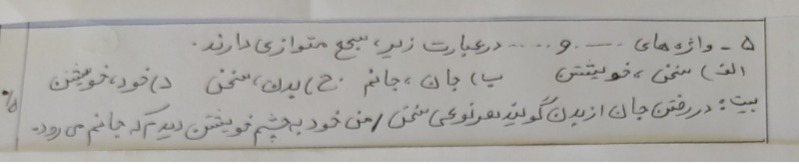 ۵ - واژه های ...... و ...... در عبارت زیر، سجع متوازی دارند.
الف) سخن، خویشتن ب) جان، جانم ج) بدن، سخن د) خود، خویشتن
بیت: در رفتن جان از بدن گویند هر نوعی سخن / من خود به چشم خویشتن دیدم که جانم می رود.